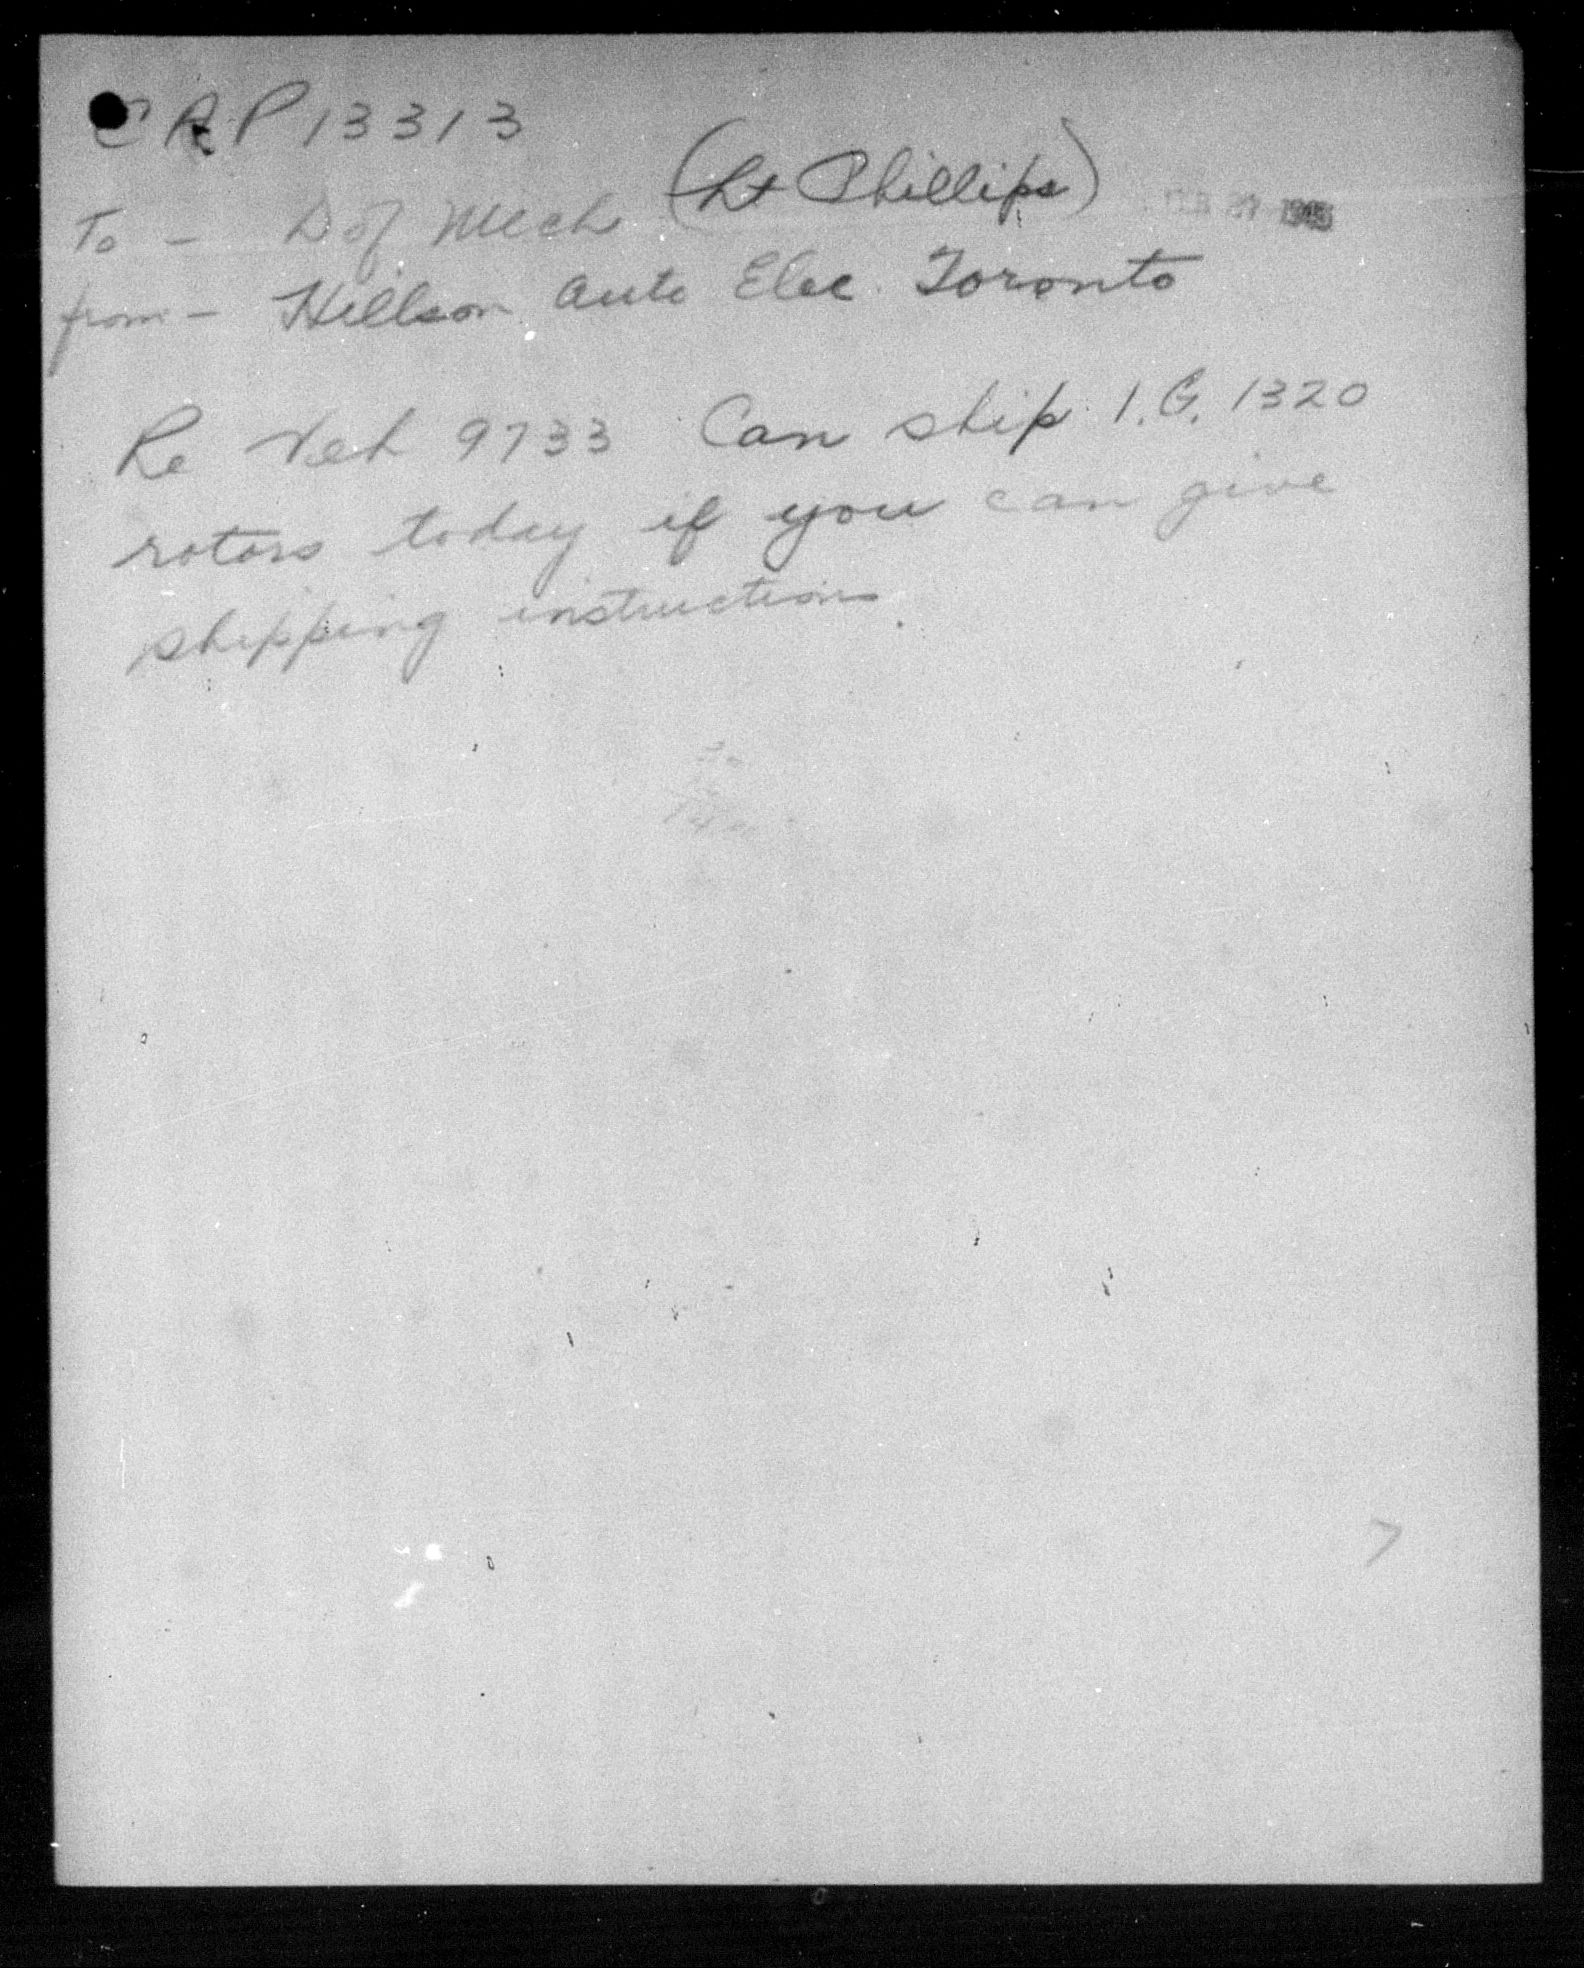 C.R.P 13313
To - D of Mech (Lt Phillips)
from - Hillson Auto Elec. Toronto
Re Veh 9733 Can ship I.G. 1320
rotors today if you can give
shipping instructions.